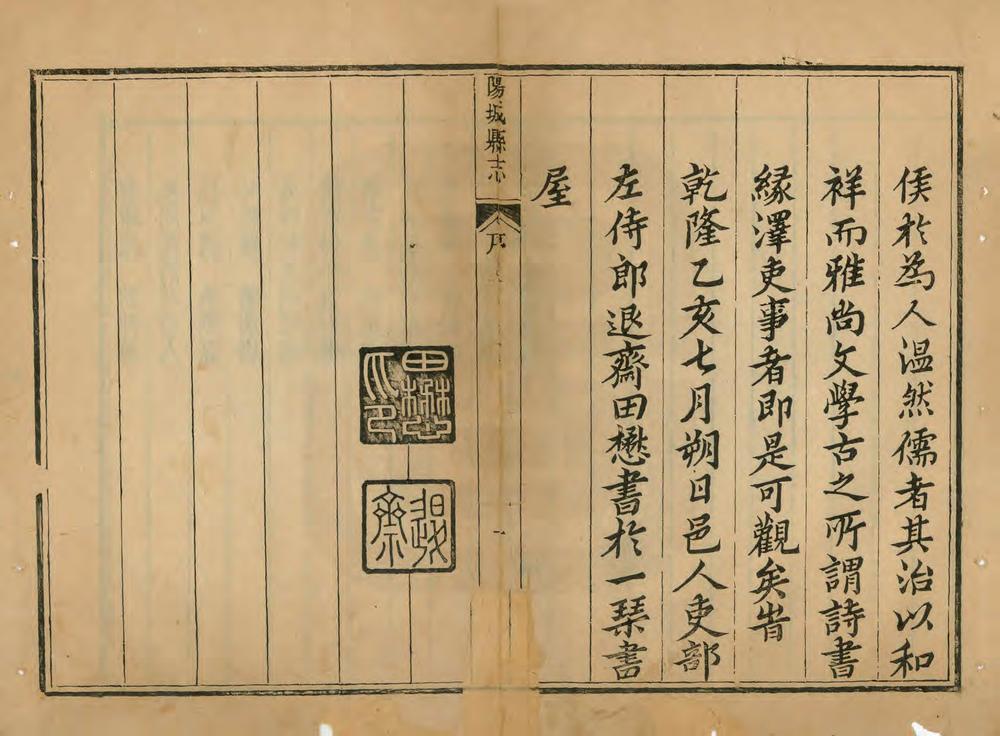 侯於為人温然儒者其治以和
祥而雅尚文學古之所謂詩書
緣澤吏事者即是可觀矣皆
乾隆乙亥七月朔日邑人吏部
左侍郎退齋田懋書於一琴書
屋
陽城縣志
序
田懋之印
退齋